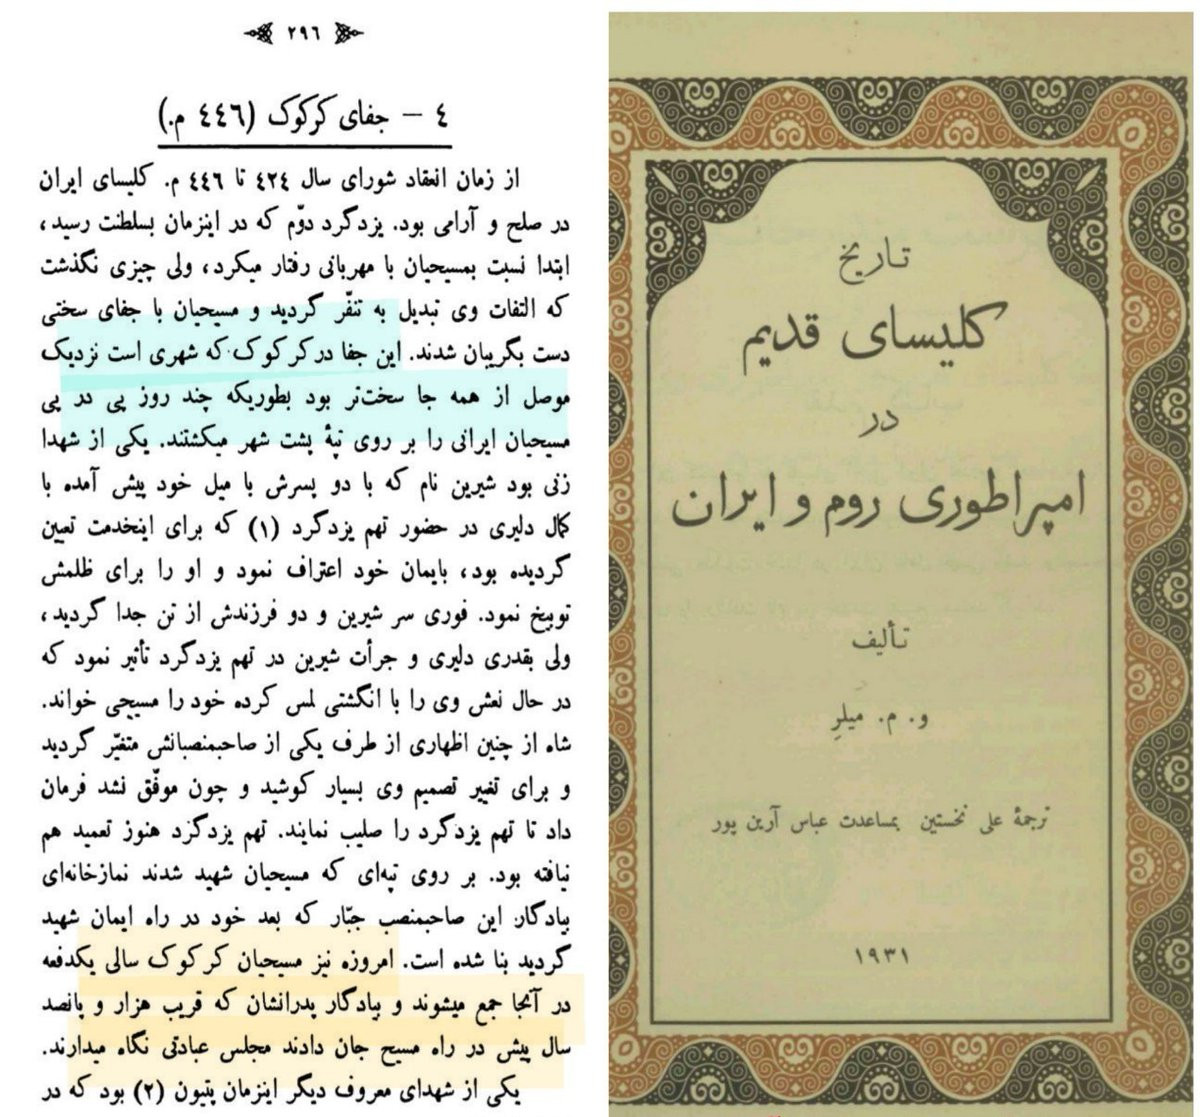 ٢٩٦
٤ – جفای کرکوک (٤٤٦ م.)
از زمان انعقاد شورای سال ٤٢٤ تا ٤٤٦ م. کلیسای ایران
در صلح و آرامی بود. یزدگرد دوّم که در اینزمان بسلطنت رسید،
ابتدا نسبت بمسیحیان با مهربانی رفتار میکرد، ولی چیزی نگذشت
که التفات وی تبدیل به تنفّر گردید و مسیحیان با جفای سختی
دست بگریبان شدند. این جفا در کرکوک که شهری است نزدیک
موصل از همه جا سخت‌تر بود بطوریکه چند روز پی در پی
مسیحیان ایرانی را بر روی تپهٔ پشت شهر میکشتند. یکی از شهدا
زنی بود شیرین نام که با دو پسرش با میل خود پیش آمده با
کمال دلیری در حضور تهم یزدگرد (١) که برای اینخدمت تعیین
گردیده بود، بایمان خود اعتراف نمود و او را برای ظلمش
توبیخ نمود. فوری سر شیرین و دو فرزندش از تن جدا گردید،
ولی بقدری دلیری و جرأت شیرین در تهم یزدگرد تأثیر نمود که
در حال نعش وی را با انگشتی لمس کرده خود را مسیحی خواند.
شاه از چنین اظهاری از طرف یکی از صاحبمنصبانش متغیّر گردید
و برای تغییر تصمیم وی بسیار کوشید و چون موفّق نشد فرمان
داد تا تهم یزدگرد را صلیب نمایند. تهم یزدگرد هنوز تعمید هم
نیافته بود. بر روی تپه‌ای که مسیحیان شهید شدند نمازخانه‌ای
بیادگار این صاحبمنصب جبّار که بعد خود در راه ایمان شهید
گردید بنا شده است. امروزه نیز مسیحیان کرکوک سالی یکدفعه
در آنجا جمع میشوند و بیادگار پدرانشان که قریب هزار و پانصد
سال پیش در راه مسیح جان دادند مجلس عبادتی نگاه میدارند.
یکی از شهدای معروف دیگر اینزمان پتیون (٢) بود که در
تاریخ
کلیسای قدیم
در
امپراطوری روم و ایران
تألیف
و. م. میلر
ترجمهٔ علی نخستین بمساعدت عباس آرین پور
١٩٣١